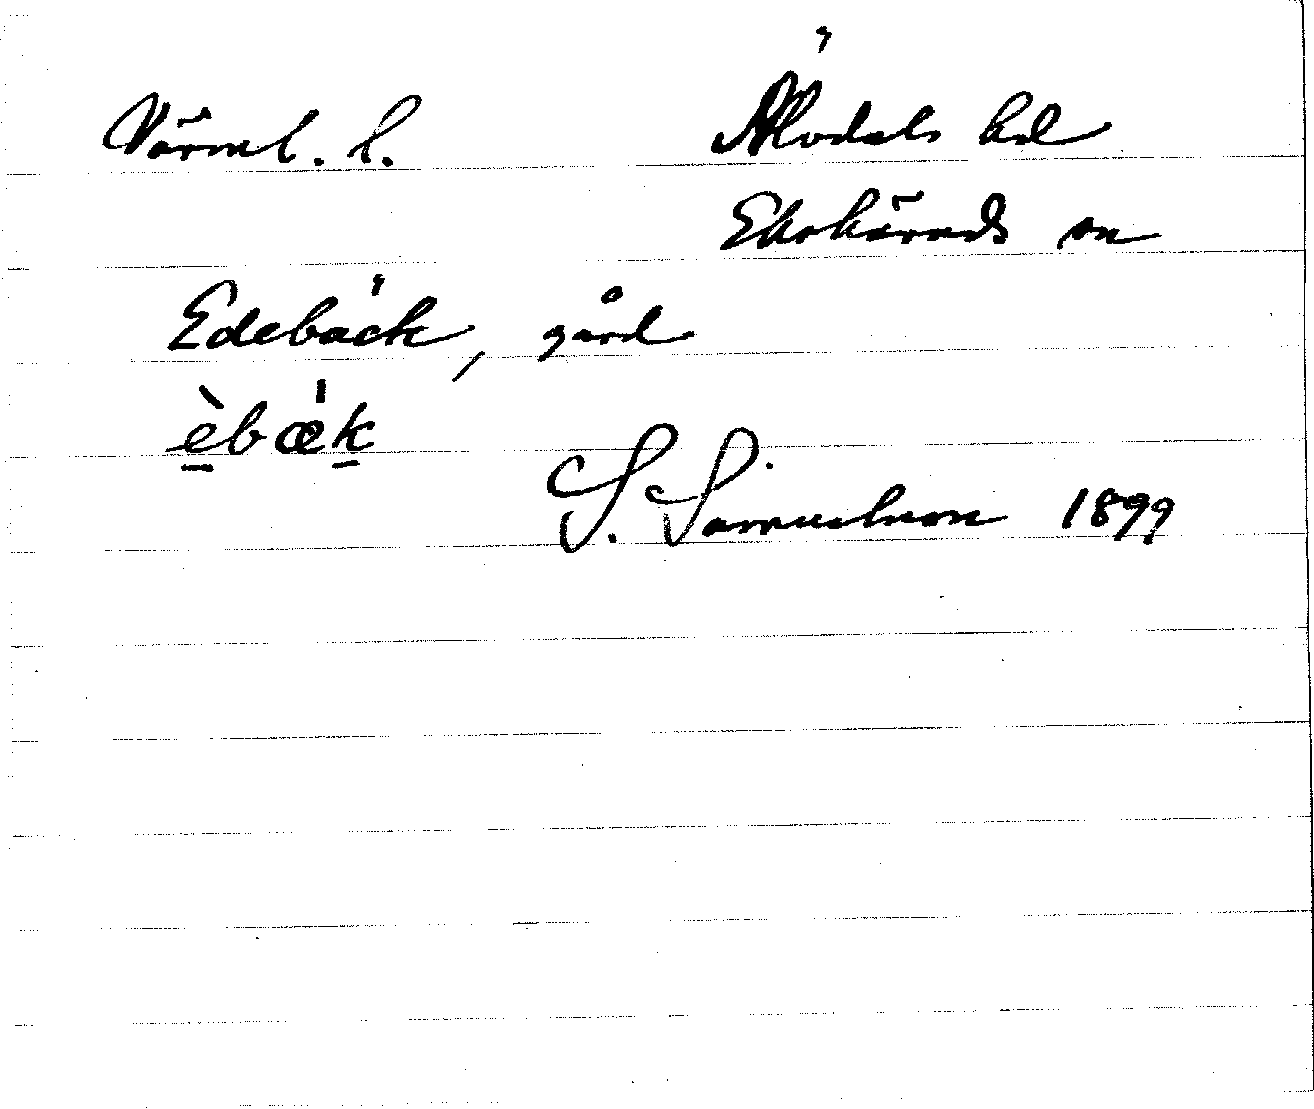 Värml. l. Älvdals hd
Ekshärads sn
Edebäck, gård
èbæ̀k
S. Samuelsson 1899